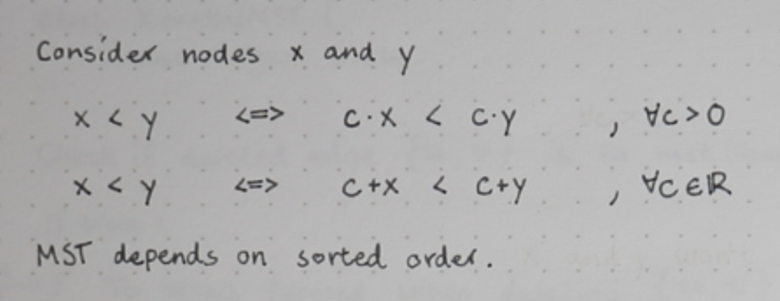 Consider nodes x and y
x < y <=> c·x < c·y , ∀c>0
x < y <=> c+x < c+y , ∀c∈ℝ
MST depends on sorted order.